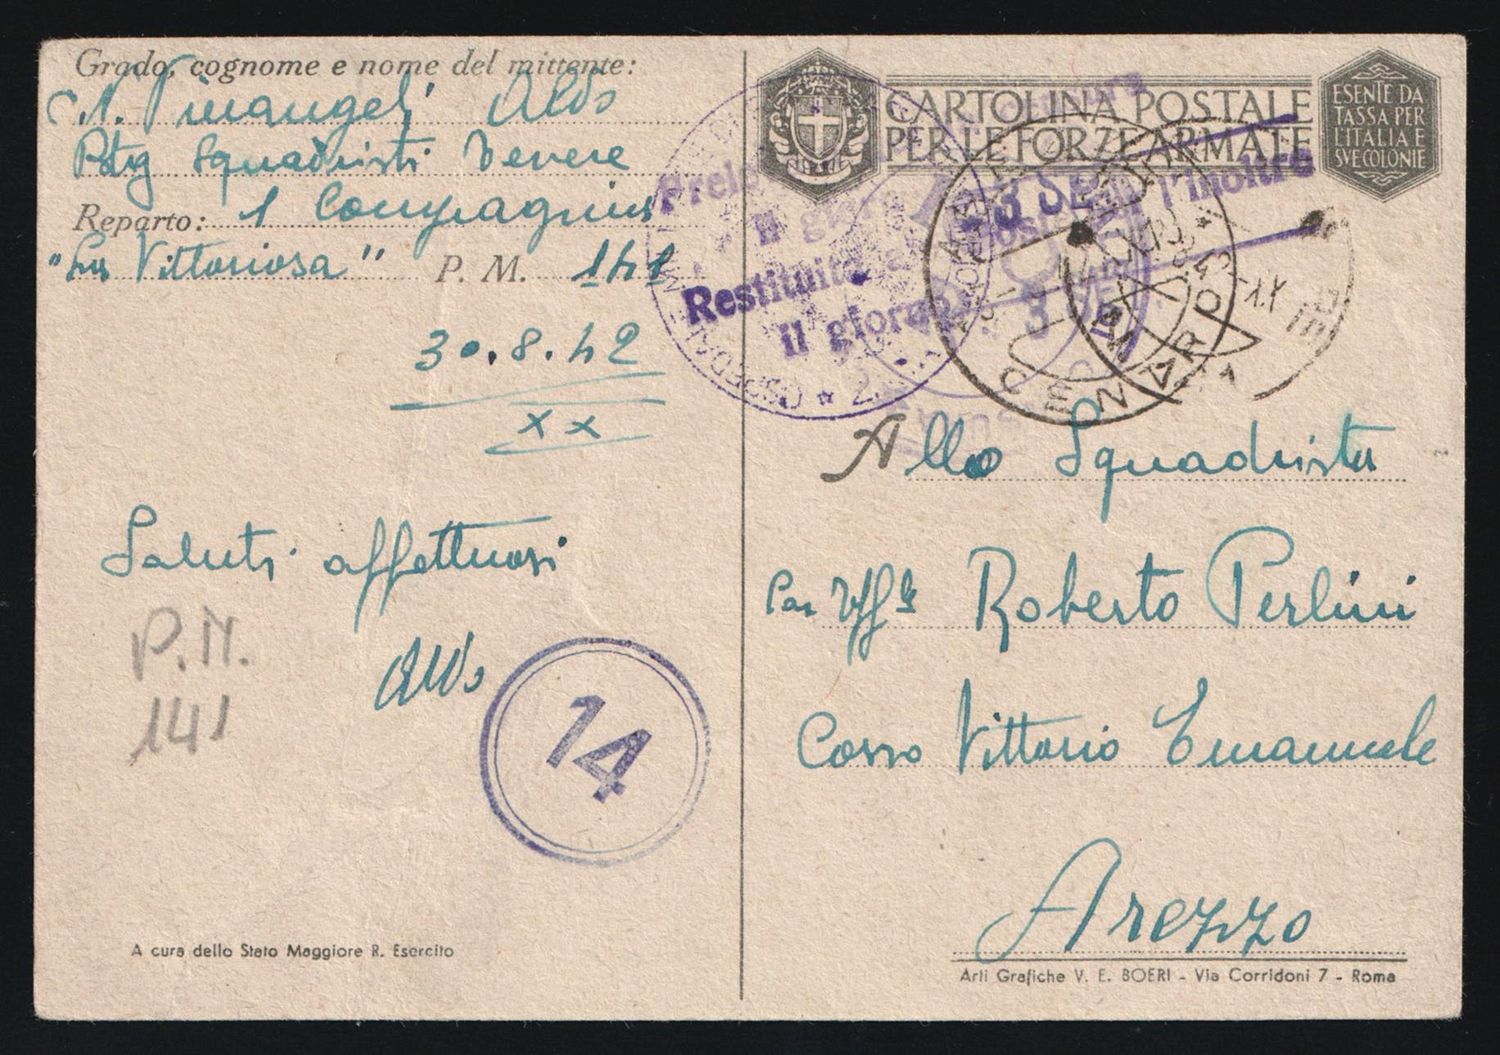 Grado, cognome e nome del mittente:
Aldo
Btg Squadristi Venere
Reparto: 1 Compagnia
"La Vittoriosa" P. M. 141
30.8.42
XX
Saluti affettuosi
Aldo
P.M.
141
14
A cura dello Stato Maggiore R. Esercito
CARTOLINA POSTALE
PER LE FORZE ARMATE
ESENTE DA
TASSA PER
L'ITALIA E
SVE COLONIE
il giorno
l'inoltro
Restituita
il giorno
3 SET
CENSURA
Allo Squadrista
Roberto Perlini
Corso Vittorio Emanuele
Arezzo
Arti Grafiche V. E. BOERI - Via Corridoni 7 - Roma